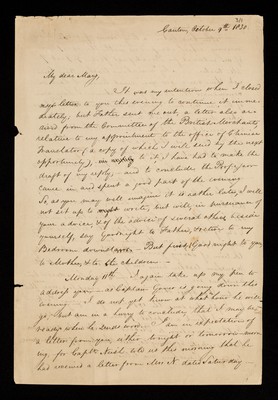 Canton, October 9th 1830
My dear Mary,
It was my intention when I closed
my letter to you this evening to continue it imme-
diately, but Father sent me out, a letter also are
rived from the Committee of the British Merchants
relative to my appointment to the office of Chinese
Translator (a copy of which I will send by the next
opportunity), in reply to it I have had to make the
draft of my reply, and to conclude the
cause in and spent a good part of the evening.
So, as you may well imagine it is rather late, I will
not set up to write, but will, in pursuance of
your advice, & of the advice of several others beside
yourself, say Goodnight to Father, retire to my
Bedroom down But first Good night to you
to Mother, & to the children -
Monday 11th - I again take up my pen to
address you as Captain is going down this
evening - I do not yet know at what hour he will
go, but am in a hurry to conclude, that I may be
ready when he sends word. I am in expectation of
a letter from you either tonight or tomorrow morn
ing, for Captn told us this morning that he
has received a letter from Mrs N dated Saturday